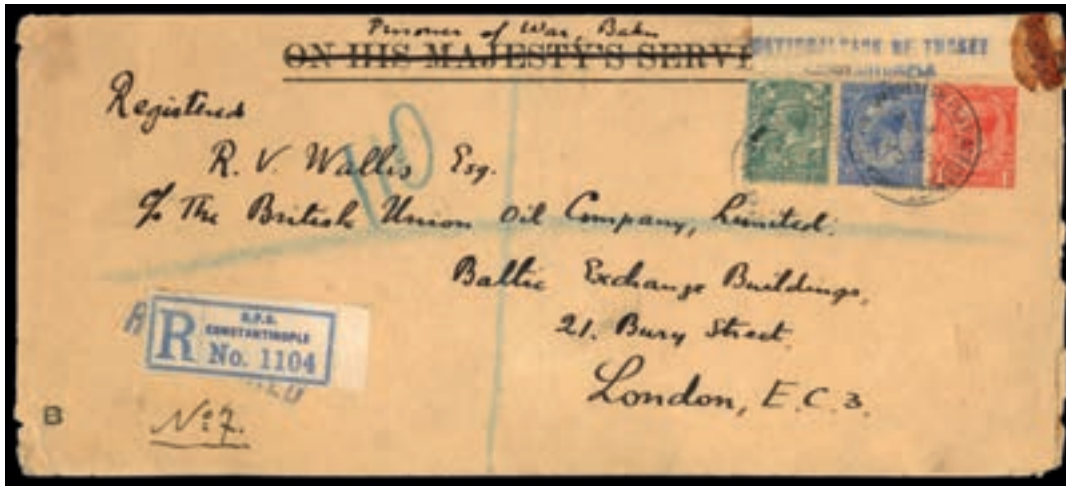 Prisoner of War, Baku
ON HIS MAJESTY'S SERVI
NATIONAL BANK OF TURKEY
Registered
110
R. V. Wallis Esq.
c/o The British Union Oil Company, Limited.
Baltic Exchange Buildings,
21. Bury Street.
London, E.C.3.
R
CONSTANTINOPLE
No. 1104
B
No 7.